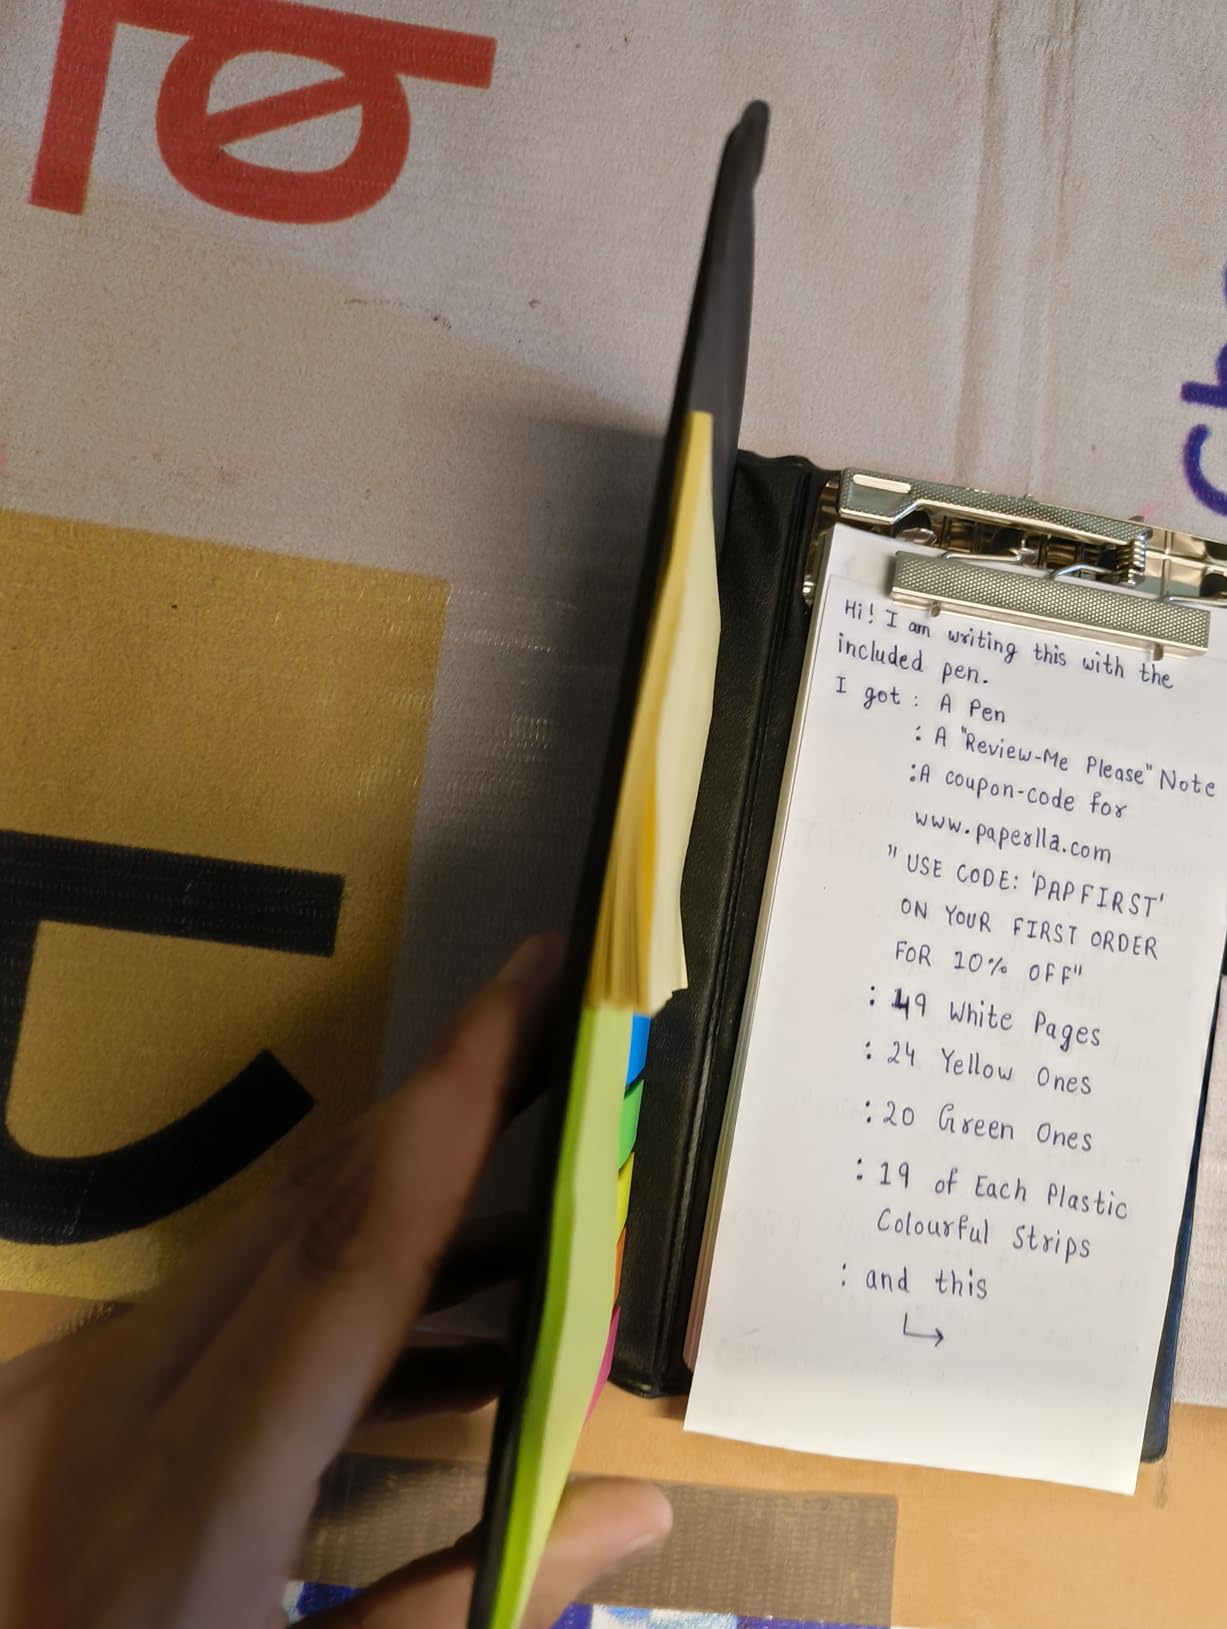 Hi! I am writing this with the
included pen.
I got : A Pen
: A "Review-Me Please" Note
: A coupon-code for
www.paperlla.com
" USE CODE: 'PAPFIRST'
ON YOUR FIRST ORDER
FOR 10% OFF"
: 49 White Pages
: 24 Yellow Ones
: 20 Green Ones
: 19 of Each Plastic
Colourful Strips
: and this